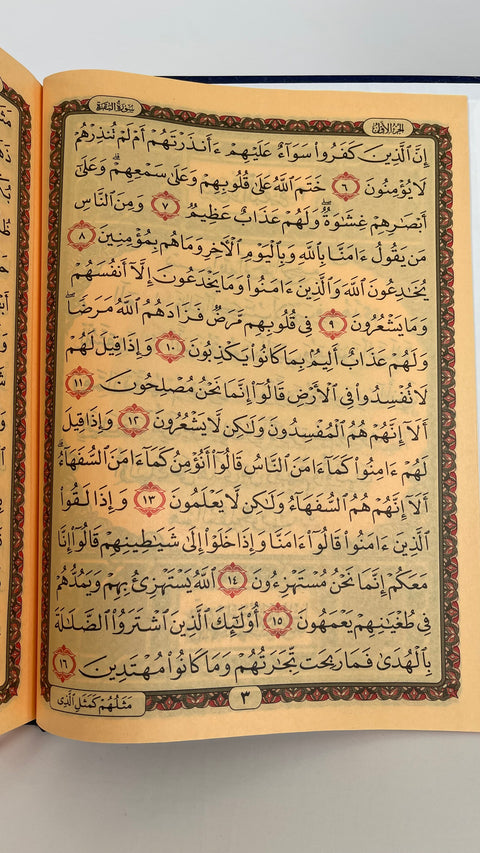 سورة البقرة
الجزء الأول
إِنَّ ٱلَّذِينَ كَفَرُوا۟ سَوَآءٌ عَلَيْهِمْ ءَأَنذَرْتَهُمْ أَمْ لَمْ تُنذِرْهُمْ
لَا يُؤْمِنُونَ ٦ خَتَمَ ٱللَّهُ عَلَىٰ قُلُوبِهِمْ وَعَلَىٰ سَمْعِهِمْ ۖ وَعَلَىٰٓ
أَبْصَٰرِهِمْ غِشَٰوَةٌ ۖ وَلَهُمْ عَذَابٌ عَظِيمٌ ٧ وَمِنَ ٱلنَّاسِ
مَن يَقُولُ ءَامَنَّا بِٱللَّهِ وَبِٱلْيَوْمِ ٱلْءَاخِرِ وَمَا هُم بِمُؤْمِنِينَ ٨
يُخَٰدِعُونَ ٱللَّهَ وَٱلَّذِينَ ءَامَنُوا۟ وَمَا يَخْدَعُونَ إِلَّآ أَنفُسَهُمْ
وَمَا يَشْعُرُونَ ٩ فِى قُلُوبِهِم مَّرَضٌ فَزَادَهُمُ ٱللَّهُ مَرَضًا ۖ
وَلَهُمْ عَذَابٌ أَلِيمٌۢ بِمَا كَانُوا۟ يَكْذِبُونَ ١٠ وَإِذَا قِيلَ لَهُمْ
لَا تُفْسِدُوا۟ فِى ٱلْأَرْضِ قَالُوٓا۟ إِنَّمَا نَحْنُ مُصْلِحُونَ ١١
أَلَآ إِنَّهُمْ هُمُ ٱلْمُفْسِدُونَ وَلَٰكِن لَّا يَشْعُرُونَ ١٢ وَإِذَا قِيلَ
لَهُمْ ءَامِنُوا۟ كَمَآ ءَامَنَ ٱلنَّاسُ قَالُوٓا۟ أَنُؤْمِنُ كَمَآ ءَامَنَ ٱلسُّفَهَآءُ ۗ
أَلَآ إِنَّهُمْ هُمُ ٱلسُّفَهَآءُ وَلَٰكِن لَّا يَعْلَمُونَ ١٣ وَإِذَا لَقُوا۟
ٱلَّذِينَ ءَامَنُوا۟ قَالُوٓا۟ ءَامَنَّا وَإِذَا خَلَوْا۟ إِلَىٰ شَيَٰطِينِهِمْ قَالُوٓا۟ إِنَّا
مَعَكُمْ إِنَّمَا نَحْنُ مُسْتَهْزِءُونَ ١٤ ٱللَّهُ يَسْتَهْزِئُ بِهِمْ وَيَمُدُّهُمْ
فِى طُغْيَٰنِهِمْ يَعْمَهُونَ ١٥ أُو۟لَٰٓئِكَ ٱلَّذِينَ ٱشْتَرَوُا۟ ٱلضَّلَٰلَةَ
بِٱلْهُدَىٰ فَمَا رَبِحَت تِّجَٰرَتُهُمْ وَمَا كَانُوا۟ مُهْتَدِينَ ١٦
٣
مَثَلُهُمْ كَمَثَلِ ٱلَّذِى